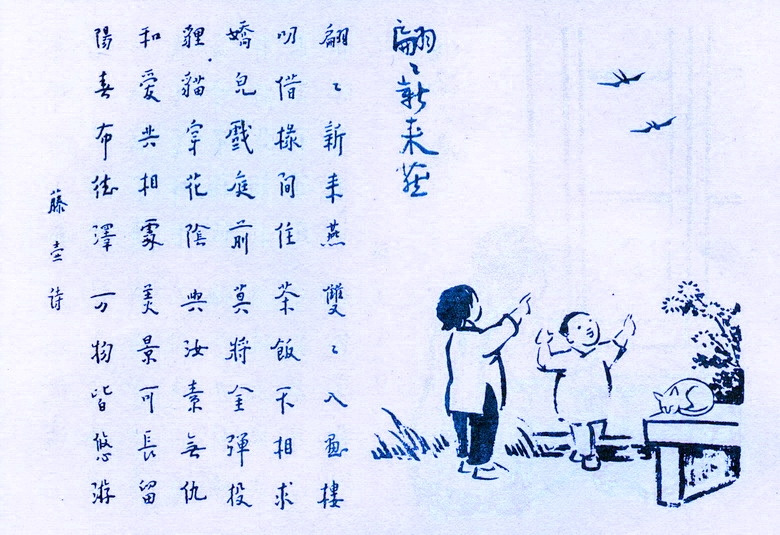 翩〻新来燕
翩〻新来燕雙〻入画樓
叨借椽间住茶飯不相求
嬌兒戲庭前莫將金彈投
貍貓穿花陰與汝素無仇
和爱共相處美景可長留
陽春布德澤万物皆悠游
藤壶诗